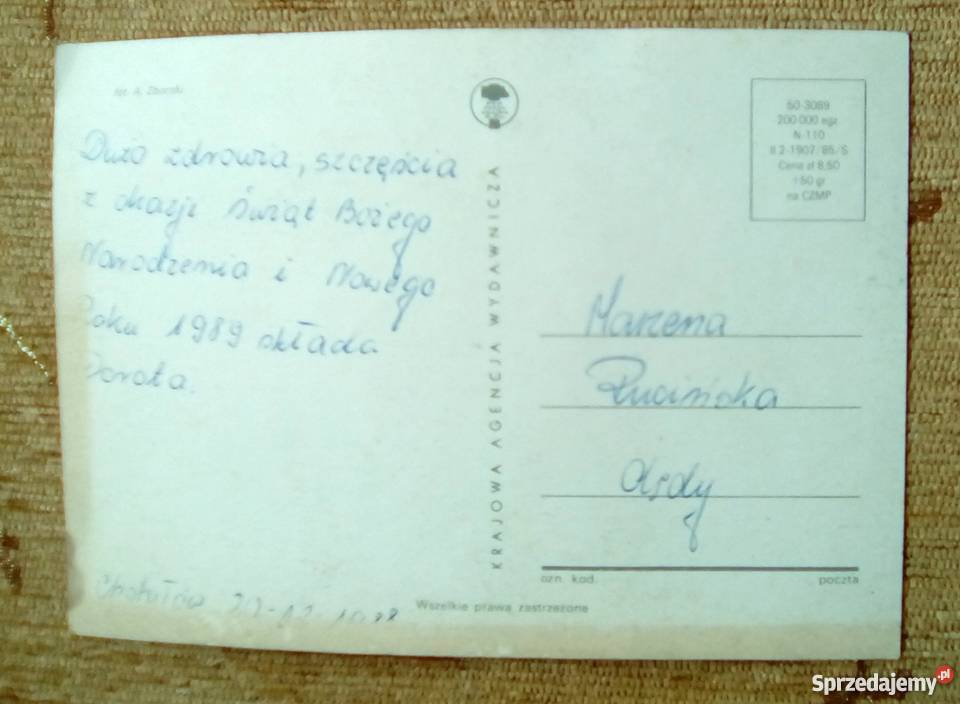 fot. A. Zborski
Dużo zdrowia, szczęścia
z okazji Świąt Bożego
Narodzenia i Nowego
Roku 1989 składa
Dorota.
22-12-1988
KRAJOWA AGENCJA WYDAWNICZA
Wszelkie prawa zastrzeżone
60-3089
200 000 egz.
N-110
II 2-1907/85/S
Cena zł 8,50
+50 gr
na CZMP
Marzena
Rucińska
ozn. kod.
poczta
Sprzedajemy.pl